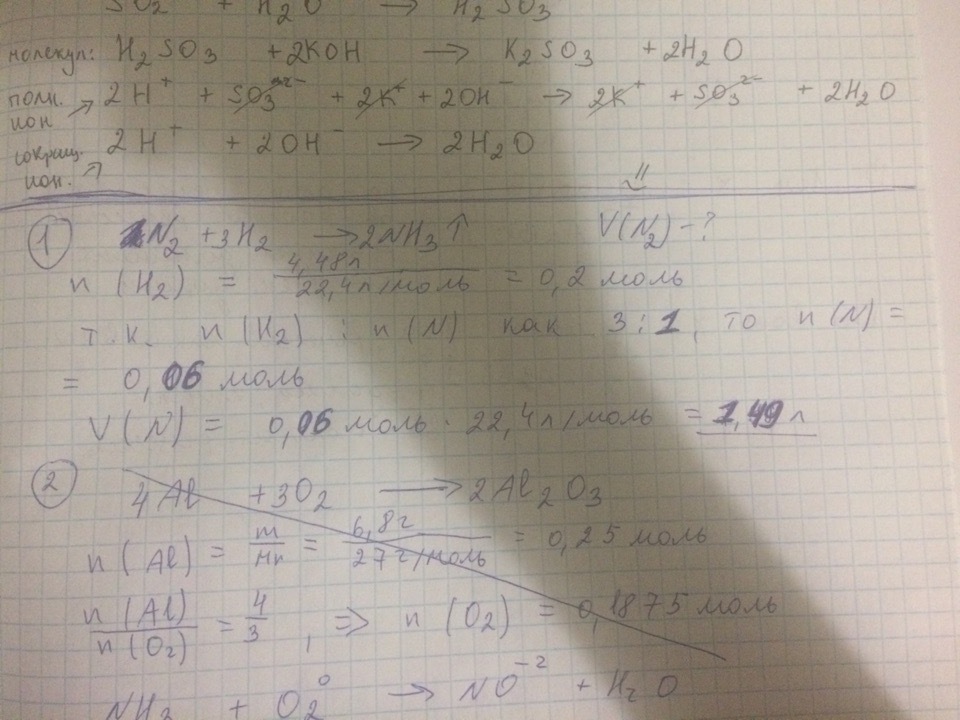 SO₂ + H₂O → H₂SO₃
молекул: H₂SO₃ + 2KOH → K₂SO₃ + 2H₂O
полн. ион → 2H⁺ + SO₃²⁻ + 2K⁺ + 2OH⁻ → 2K⁺ + SO₃²⁻ + 2H₂O
сокращ. ион. → 2H⁺ + 2OH⁻ → 2H₂O
1 1N₂ + 3H₂ → 2NH₃↑ V(N₂) - ?
n (H₂) = 4,48л / 22,4л/моль = 0,2 моль
т.к. n (H₂) : n (N) как 3:1, то n (N) =
= 0,06 моль
V(N) = 0,06 моль · 22,4л/моль = 1,49 л
2 4Al + 3O₂ → 2Al₂O₃
n (Al) = m / Mr = 6,8г / 27г/моль = 0,25 моль
n (Al) / n (O₂) = 4 / 3, => n (O₂) = 0,1875 моль
NH₃ + O₂⁰ → NO⁻² + H₂O